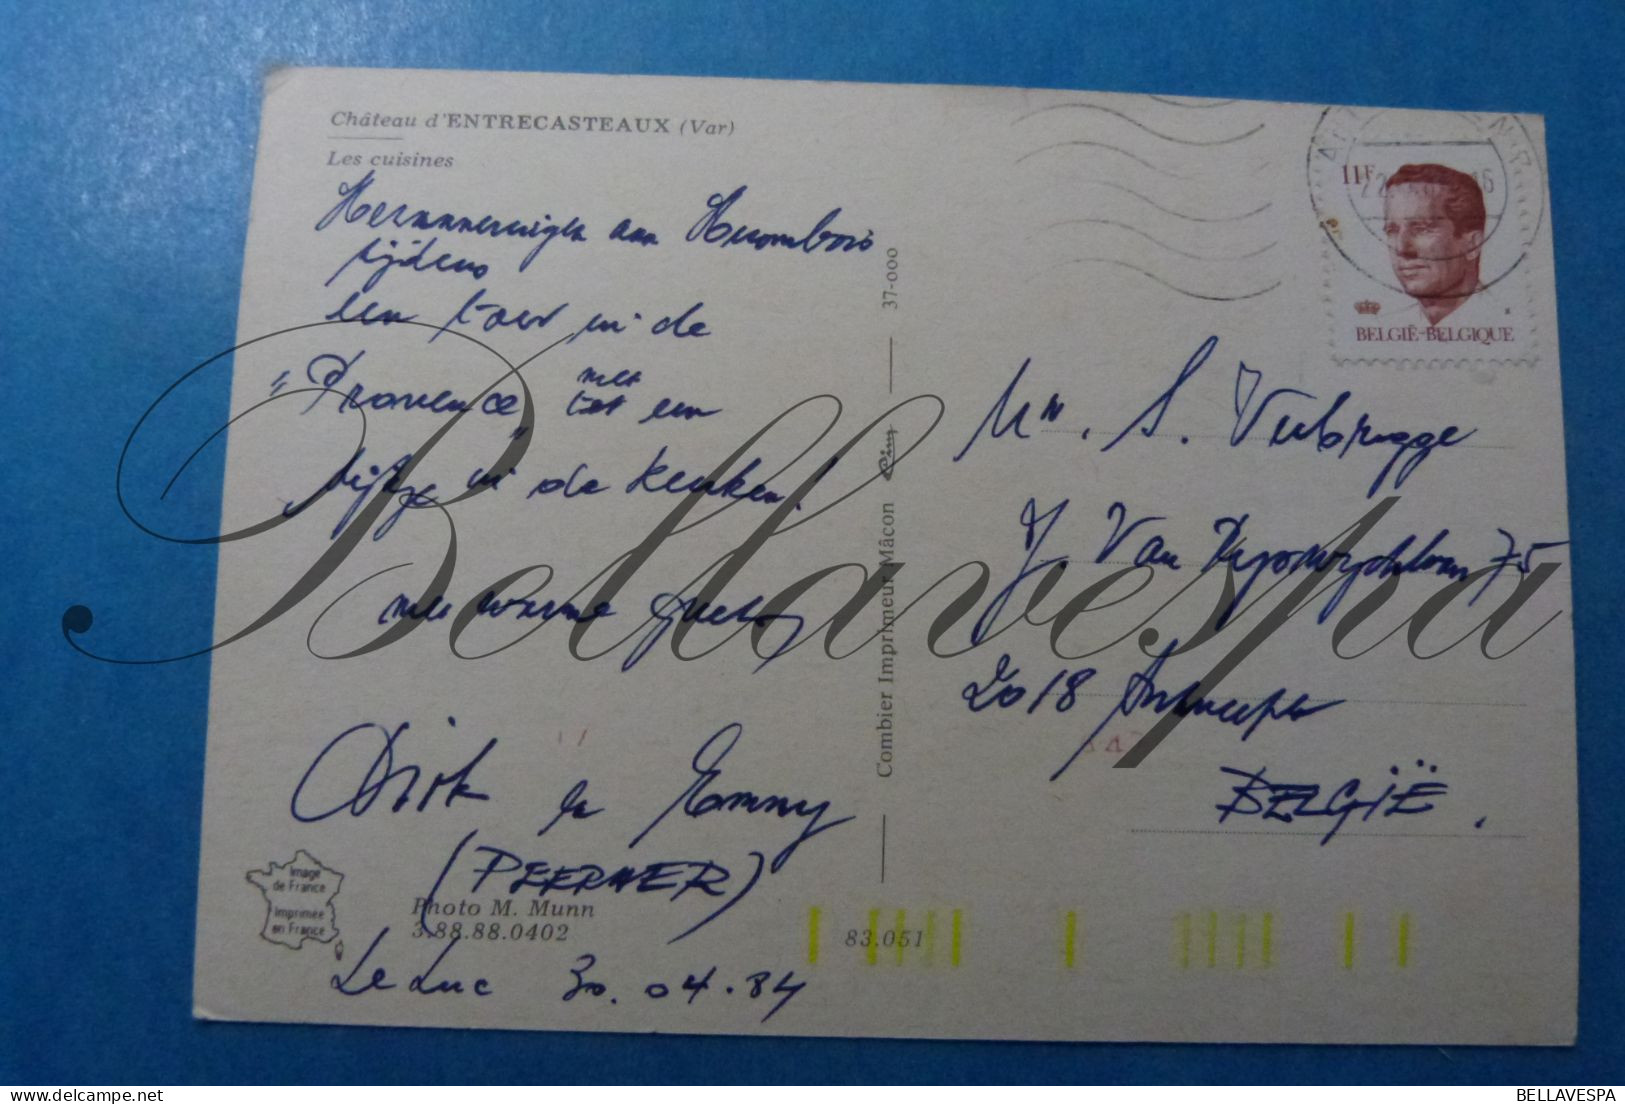 Château d'ENTRECASTEAUX (Var)
Les cuisines
aan
tijdens
een toer in de
"Provence" met een
kijkje in de keuken!
met warme groeten
Dirk en Emmy
(PEERMER)
Photo M. Munn
3.88.88.0402
Le Luc 30.04.84
Image
de France
Imprimée
en France
Combier Imprimeur Mâcon Cim 37-000
83.051
11F
BELGIË-BELGIQUE
Mr. S. Verbrugge
J. Van 75
2018 Antwerpen
BELGIË.
Bellavespa
BELLAVESPA